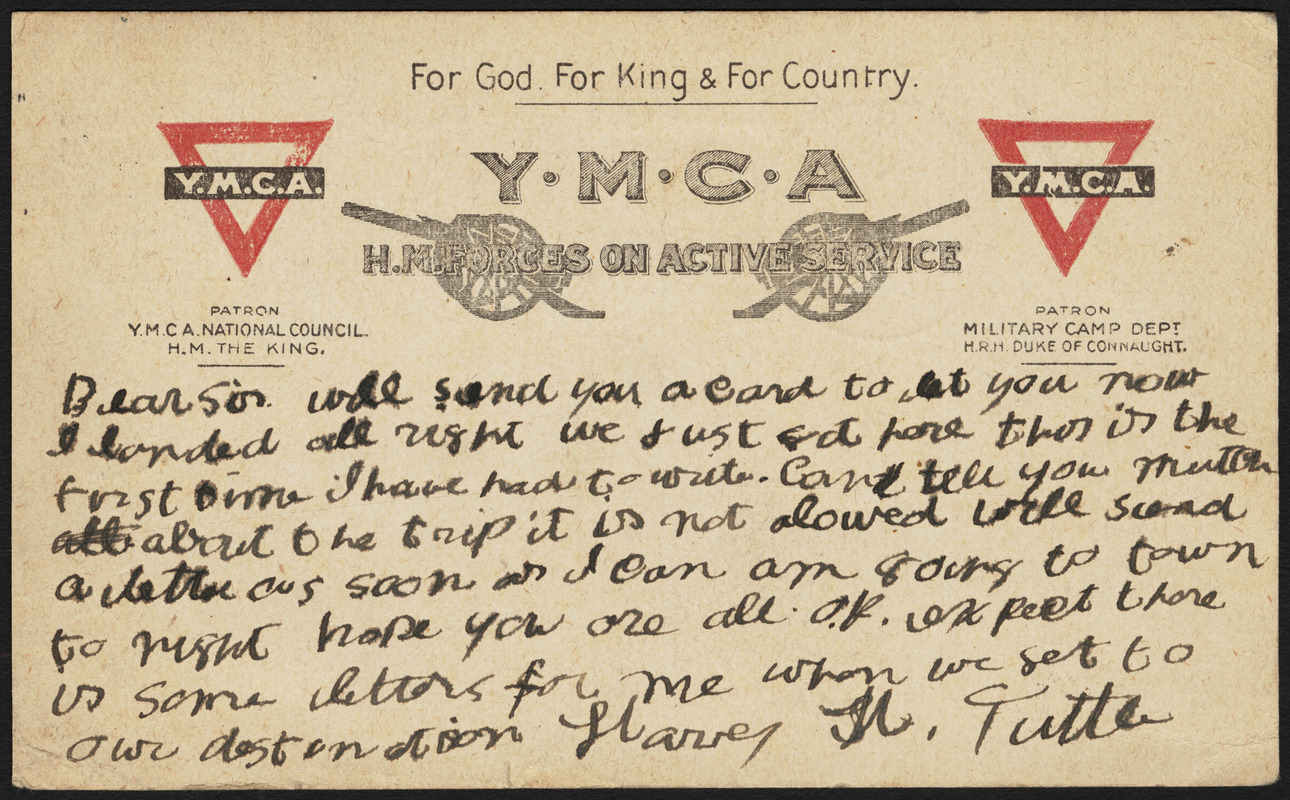 For God. For King & For Country.
Y.M.C.A.
Y·M·C·A
Y.M.C.A.
H.M. FORCES ON ACTIVE SERVICE
PATRON
Y.M.C A. NATIONAL COUNCIL.
H.M. THE KING.
PATRON
MILITARY CAMP DEPT
H.R.H. DUKE OF CONNAUGHT.
Dear Sir. will send you a card to let you now
I landed all right we just got here this is the
first time I have had to write. Cant tell you mutch
about the trip it is not alowed will send
a letter as soon as I can am going to town
to night hope you are all O.K. expect there
is some letters for me when we get to
our destination Harvey H. Tuttle